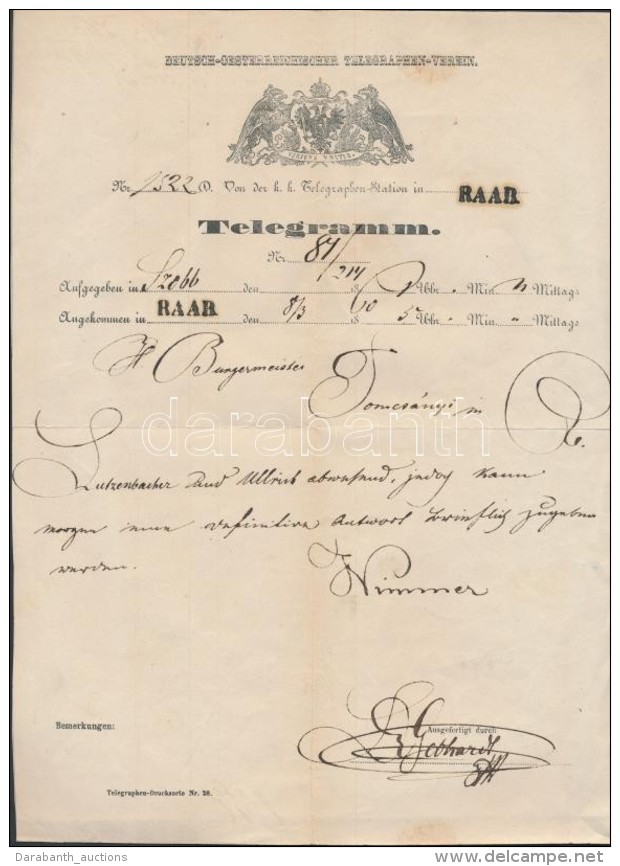 DEUTSCH-OESTERREICHISCHER TELEGRAPHEN-VEREIN.
VIRIBUS UNITIS.
Nr. 1522 D. Von der k. k. Telegraphen-Station in RAAB
Telegramm.
Nr. 87/214
Aufgegeben in Szobb den 18 Uhr Min. Mittags
Angekommen in RAAB den 8/3 1860 5 Uhr Min. " Mittags
H Burgermeister
Tomcsányi in R.
Lutzenbacher und Ullrich abwesend, jedoch kann
morgen eine definitive Antwort brieflich zugeben
werden.
Nimmer
darabanth
.com
Bemerkungen:
Ausgefertigt durch
Gebhardt
Telegraphen-Drucksorte Nr. 28.
Darabanth_auctions
www.delcampe.net